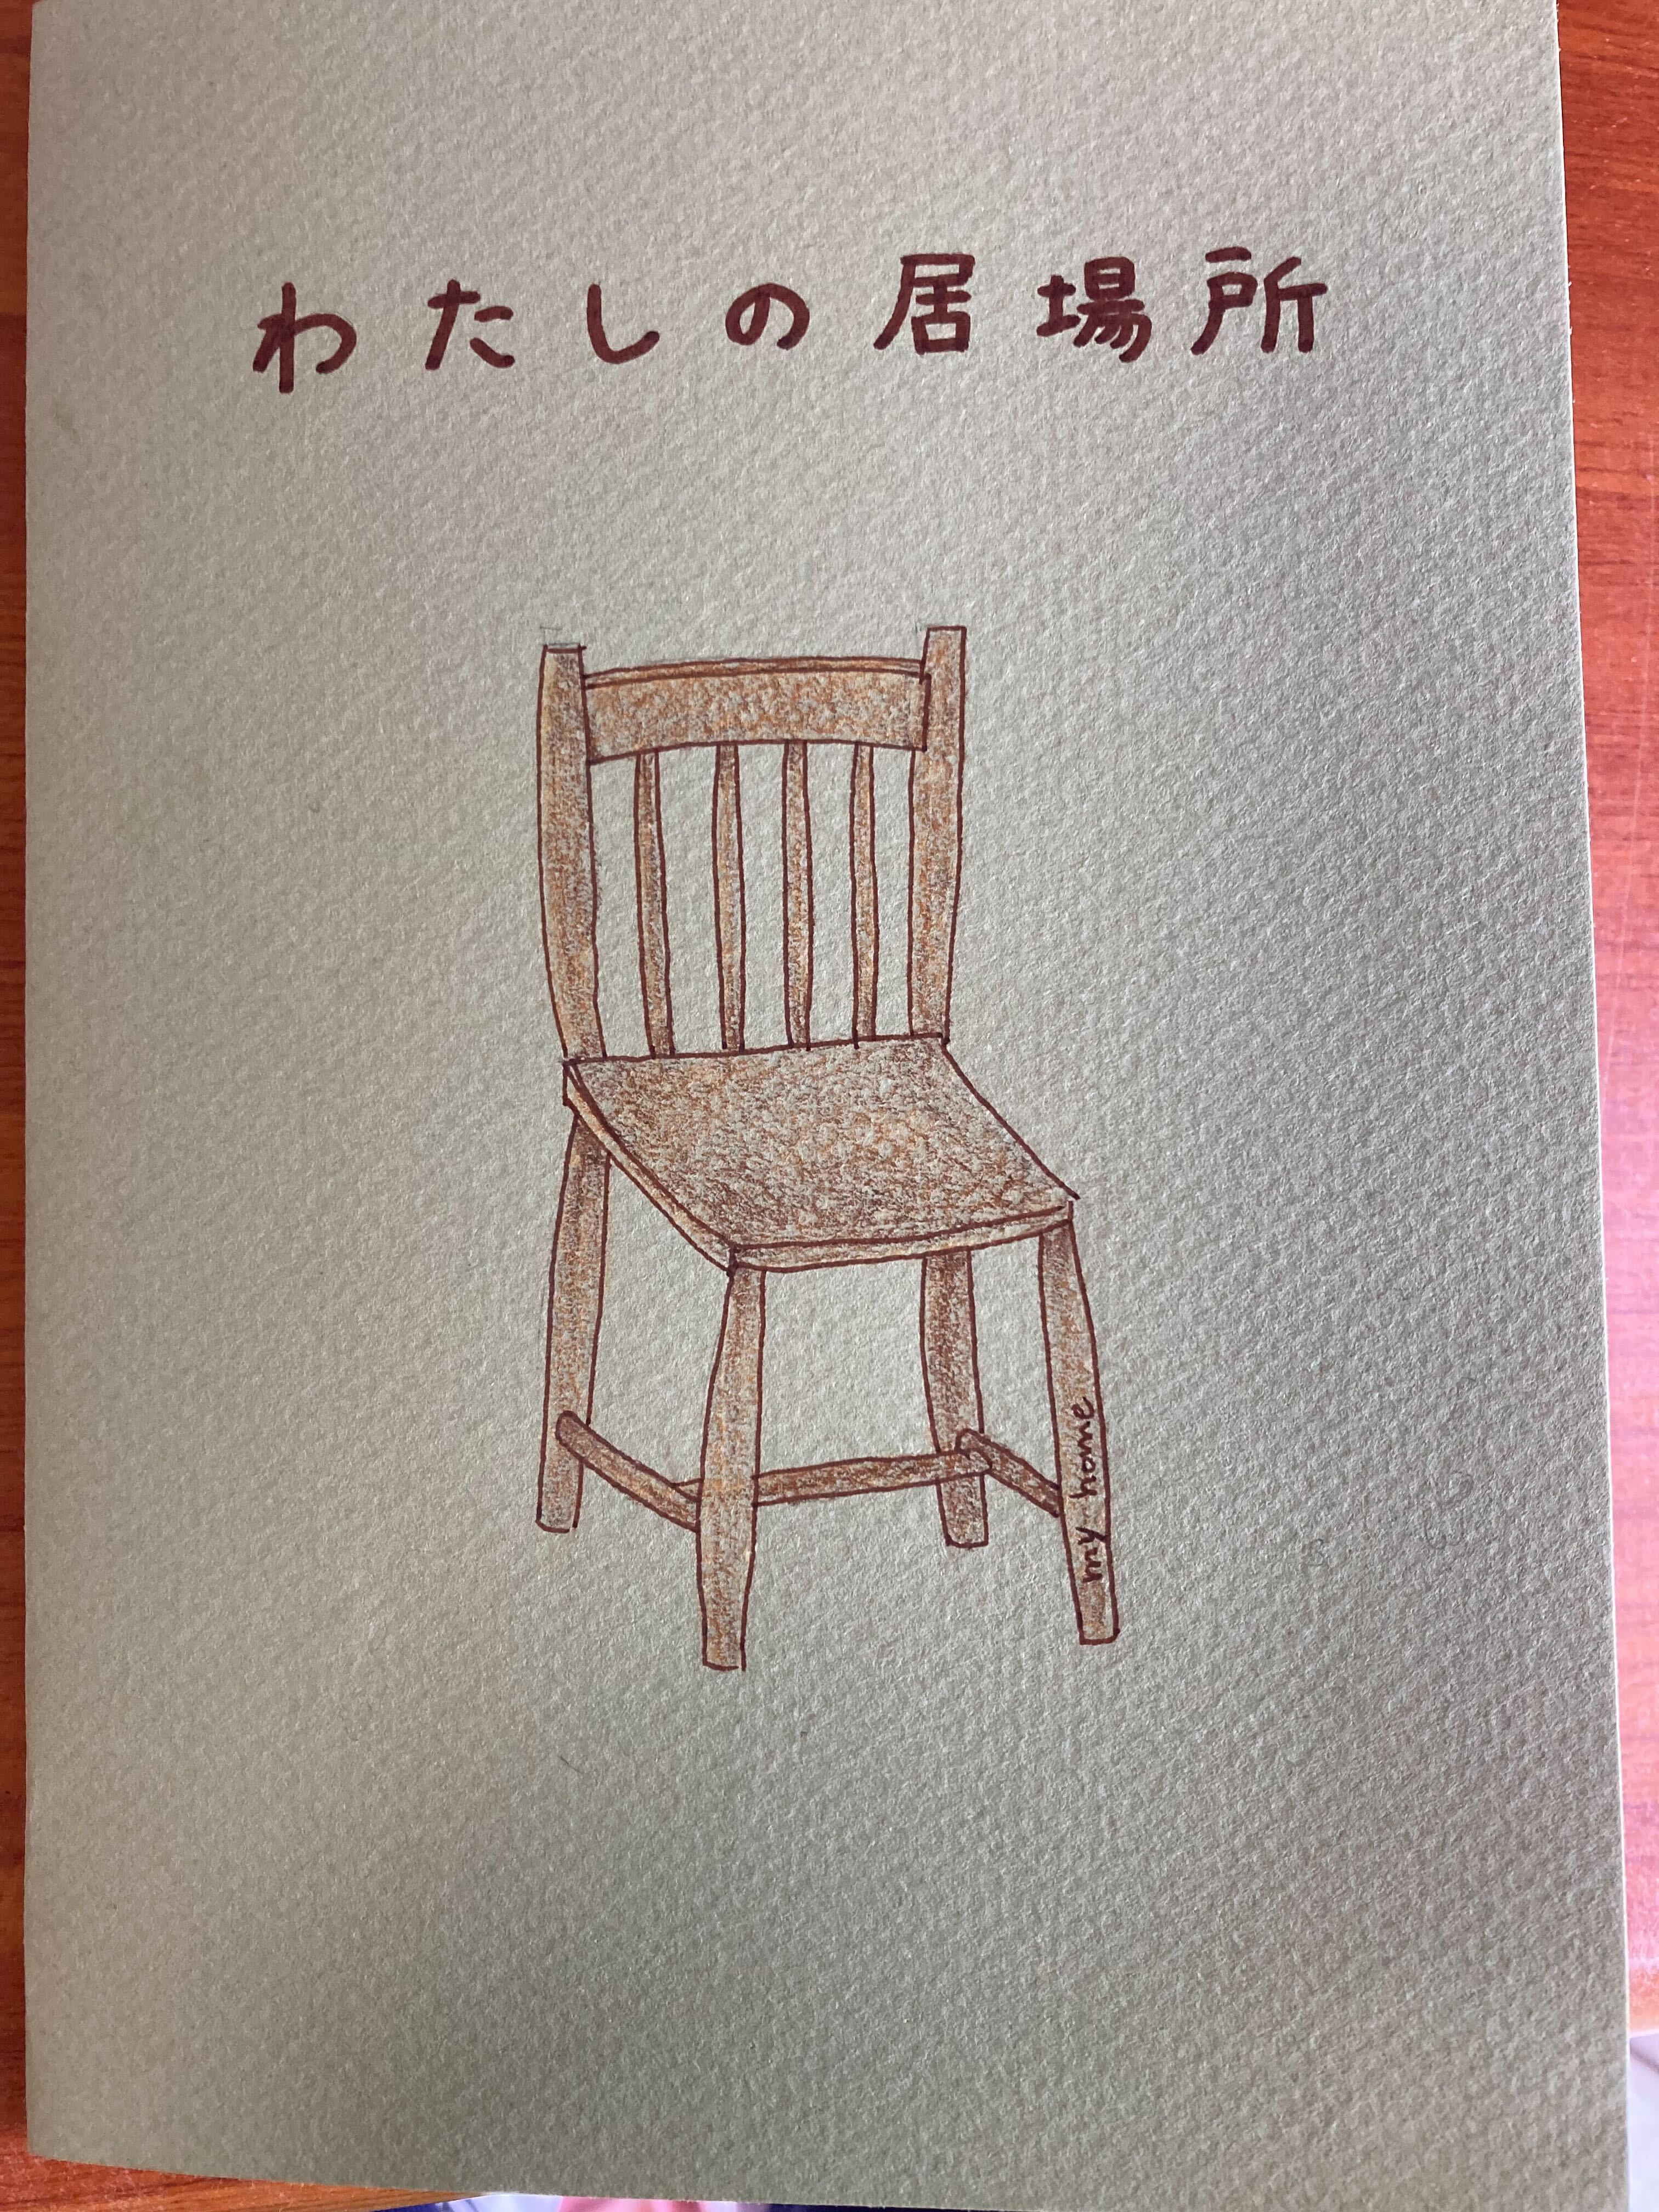 わたしの居場所
my home